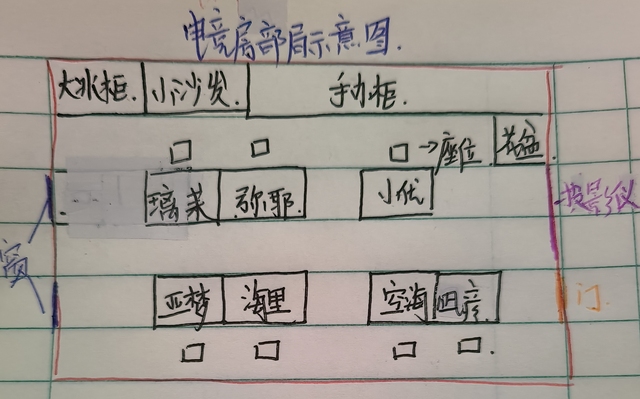 电竞房部局示意图.
大冰柜. 小沙发. 手办柜.
→座位 花盆
璃茉 弥耶 小优 投影仪
窗
亚梦 海里 空海 四彦. 门